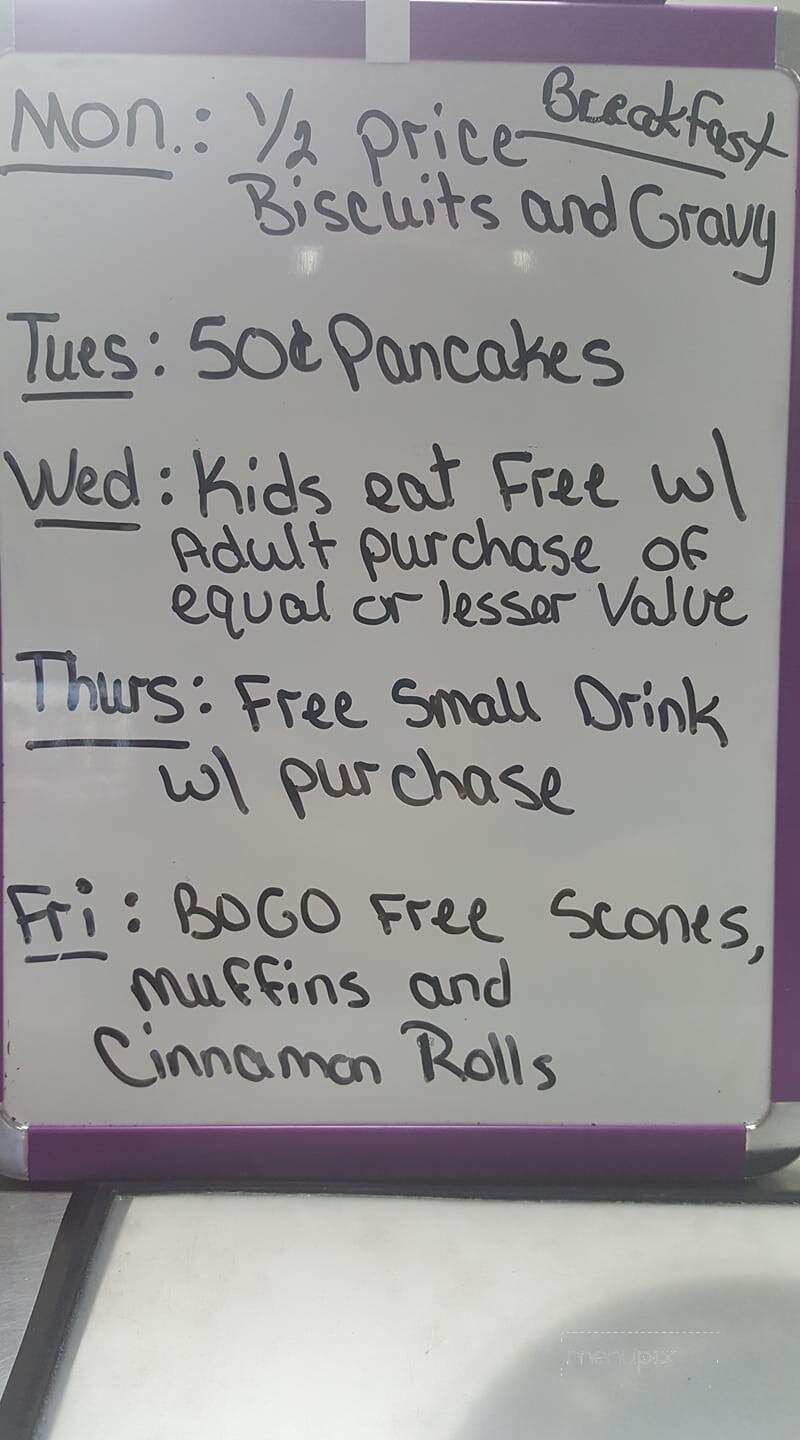 Breakfast
Mon.: 1/2 price
Biscuits and Gravy
Tues: 50¢ Pancakes
Wed: Kids eat Free w/
Adult purchase of
equal or lesser Value
Thurs: Free Small Drink
w/ purchase
Fri: BOGO Free Scones,
muffins and
Cinnamon Rolls
menupix